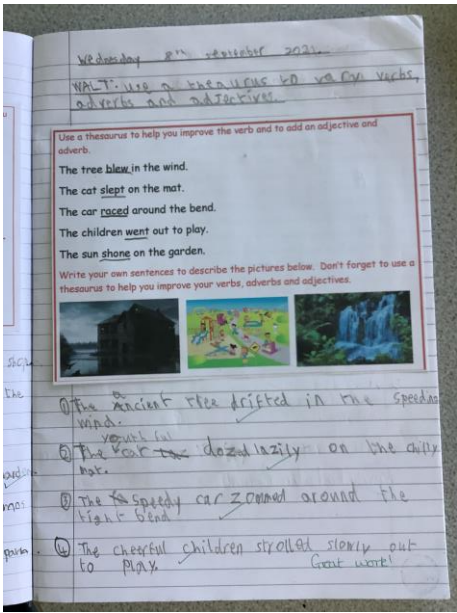 Wednesday 8th september 2021
WALT: use a thesaurus to vary verbs,
adverbs and adjectives.
Use a thesaurus to help you improve the verb and to add an adjective and
adverb.
The tree blew in the wind.
The cat slept on the mat.
The car raced around the bend.
The children went out to play.
The sun shone on the garden.
Write your own sentences to describe the pictures below. Don't forget to use a
thesaurus to help you improve your verbs, adverbs and adjectives.
① The ancient tree drifted in the speeding
wind.
youthful
② The cat dozed lazily on the chilly
mat.
③ The speedy car zommed around the
tight bend
④ The cheerful children strolled slowly out
to play.
Great work!
the